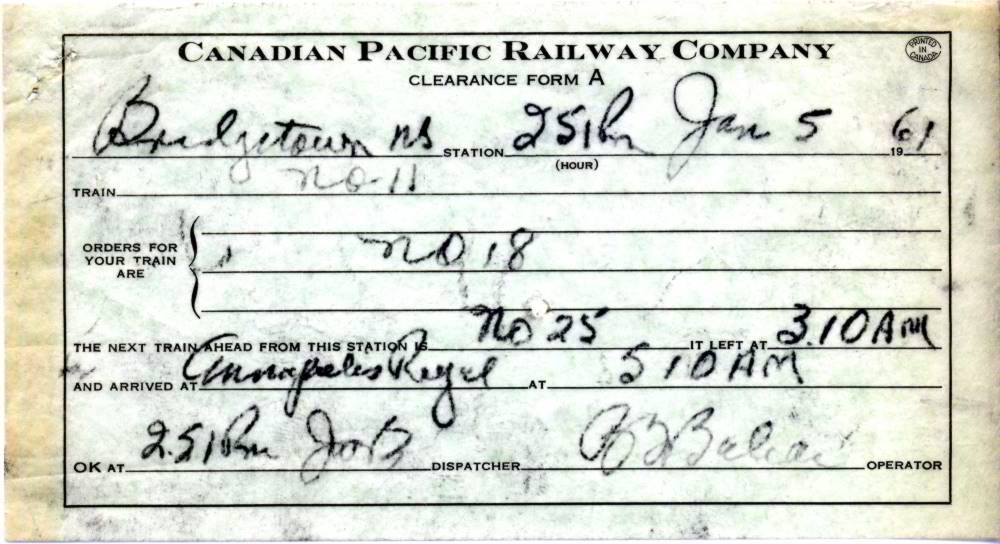 CANADIAN PACIFIC RAILWAY COMPANY
PRINTED IN CANADA
CLEARANCE FORM A
Bridgetown NS STATION 251Pm Jan 5 1961
(HOUR)
TRAIN No 11
ORDERS FOR YOUR TRAIN ARE
1 No 18
THE NEXT TRAIN AHEAD FROM THIS STATION IS No 25 IT LEFT AT 3.10 AM
AND ARRIVED AT Annapolis Royal AT 510 AM
OK AT 2.51Pm DISPATCHER OPERATOR